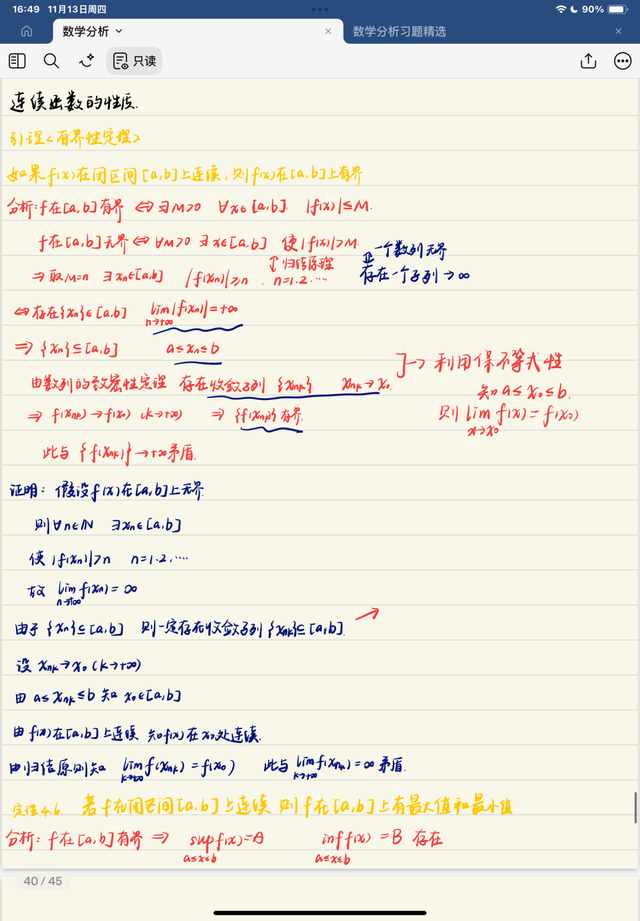 16:49 11月13日周四
90%
数学分析
数学分析习题精选
只读
连续函数的性质.
引理<有界性定理>
如果f(x)在闭区间[a,b]上连续,则f(x)在[a,b]上有界
分析:f在[a,b]有界 ⇔ ∃M>0 ∀x∈[a,b]. |f(x)|≤M.
f在[a,b]无界 ⇔ ∀M>0 ∃x∈[a,b] 使|f(x)|>M.
一个数列无界
↕归结原理
存在一个子列→∞
⇒ 取M=n ∃xn∈[a,b] |f(xn)|≥n. n=1.2.…
⇔ 存在{xn}∈[a,b] lim|f(xn)|=+∞
n→+∞
⇒ {xn}⊆[a,b] a≤xn≤b
由数列的致密性定理 存在收敛子列 {xnk} xnk→x0.
→ 利用保不等式性
知 a≤x0≤b.
⇒ f(xnk)→f(x0) (k→+∞) ⇒ {f(xnk)}有界.
则 lim f(x)=f(x0)
x→x0
此与 {f(xnk)}→+∞矛盾.
证明: 假设f(x)在[a,b]上无界.
则∀n∈N ∃xn∈[a,b]
使 |f(xn)|>n n=1.2.…
故 lim f(xn)=∞
n→+∞
由于 {xn}⊆[a,b] 则一定存在收敛子列{xnk}⊆[a,b].
设 xnk→x0 (k→+∞)
由 a≤xnk≤b 知 x0∈[a,b]
由f(x)在[a,b]上连续 知f(x)在x0处连续.
由归结原则知 lim f(xnk)=f(x0) 此与 lim f(xnk)=∞ 矛盾.
k→+∞ k→+∞
定理4.6. 若f在闭区间[a.b]上连续 则f在[a,b]上有最大值和最小值
分析: f在[a,b]有界 ⇒ sup f(x)=A inf f(x)=B 存在
a≤x≤b a≤x≤b
40 / 45